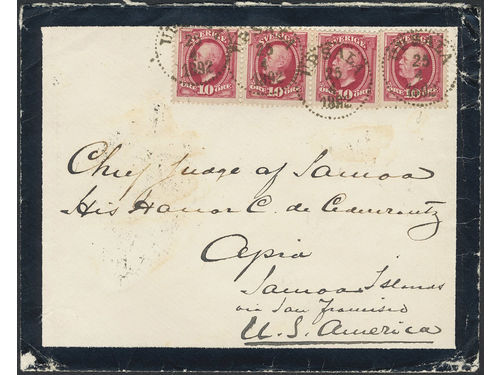 SVERIGE SVERIGE SVERIGE SVERIGE
UPSALA 25 1892
10 10 10 10
ÖRE ÖRE ÖRE ÖRE ÖRE ÖRE
Chief Judge of Samoa
His Honor C. de Cedercrantz
Apia
Samoa Islands
via San Francisco
U. S. America